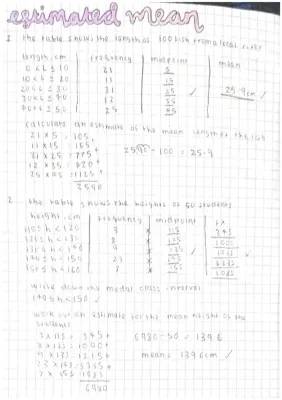 estimated mean
1 the table shows the length of 100 fish from a local river
length, cm frequency midpoint mean
0 < L ≤ 10 21 5
10 < L ≤ 20 11 15
20 < L ≤ 30 31 25 25.9cm ✓
30 < L ≤ 40 12 35
40 < L ≤ 50 25 45
calculate an estimate of the mean length of the fish
21 x 5 = 105
11 x 15 = 165
31 x 25 = 775 2590 ÷ 100 = 25.9
12 x 35 = 420
25 x 45 = 1125
2590
2. the table shows the heights of 50 students
height, cm frequency midpoint fx
110 ≤ h < 120 3 x 115 345
120 ≤ h < 130 8 x 125 1000
130 ≤ h < 140 9 x 135
140 ≤ h < 150 23 x 145 3335
150 ≤ h < 160 7 x 155 1085
write down the modal class interval
140 ≤ h < 150 ✓
work out an estimate for the mean height of the
students
3 x 115 = 345 + 6980 ÷ 50 = 139.6
8 x 125 = 1000 +
9 x 135 = 1215 + mean = 139.6cm ✓
23 x 145 = 3335 +
7 x 155 = 1085
6980